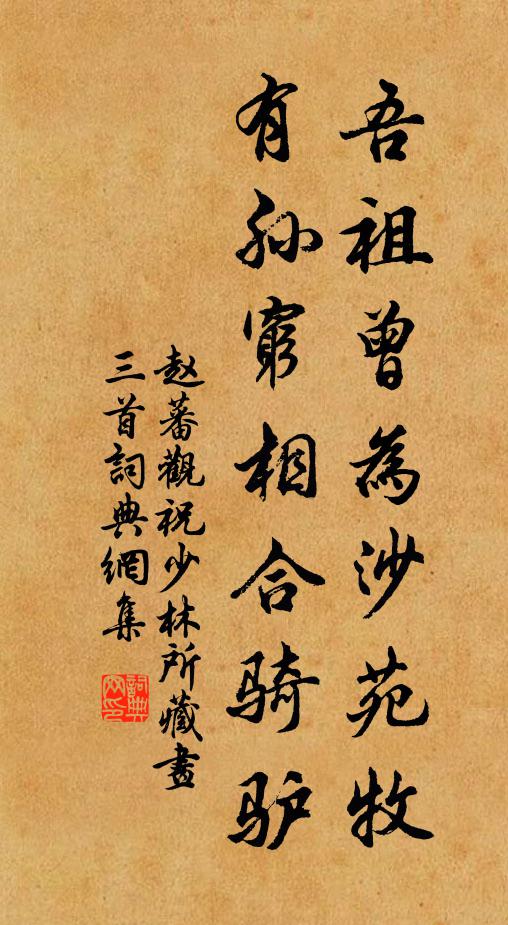 吾祖曾為沙苑牧
有孙窮相合骑驴
赵蕃觀祝少林所藏畫
三首詞典網集
詞典
网印